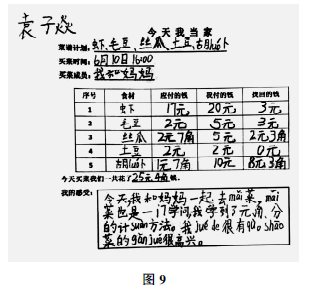 袁子焱
今天我当家
菜谱计划：虾、毛豆、丝瓜、土豆、胡萝卜
买菜时间：6月10日16:00
买菜成员：我和妈妈
序号 食材 应付的钱 我付的钱 找回的钱
1 虾 17元 20元 3元
2 毛豆 2元 5元 3元
3 丝瓜 2元7角 5元 2元3角
4 土豆 2元 2元 0元
5 胡萝卜 1元7角 10元 8元3角
今天买菜我们一共花了25元4角钱。
我的感受：
今天，我和妈妈一起去mǎi菜，mǎi
菜也是一门学问，我学到了元、角、分
的计suàn方法。我jué de很有qù。shāo
菜的gǎn jué很高兴。
图 9